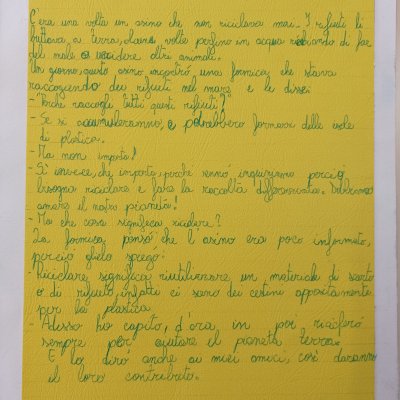 C'era una volta un asino che non riciclava mai. I rifiuti li
buttava a terra, alcune volte perfino in acqua rischiando di far
del male o uccidere altri animali.
Un giorno, questo asino incontrò una formica che stava
raccogliendo dei rifiuti nel mare e le disse:
- "Perché raccogli tutti questi rifiuti?"
- Se si accumuleranno, potrebbero formare delle isole
di plastica.
- Ma non importa!
- Sì invece, che importa, perché sennò inquiniamo perciò
bisogna riciclare e fare la raccolta differenziata. Dobbiamo
amare il nostro pianeta!
- Ma che cosa significa riciclare?
La formica pensò che l'asino era poco informato,
perciò glielo spiegò:
- Riciclare significa riutilizzare un materiale di scarto
o di rifiuto, infatti ci sono dei cestini appositamente
per la plastica.
- Adesso ho capito, d'ora in poi
sempre per aiutare il pianeta terra.
E lo dirò anche ai miei amici, così daranno
il loro contributo.